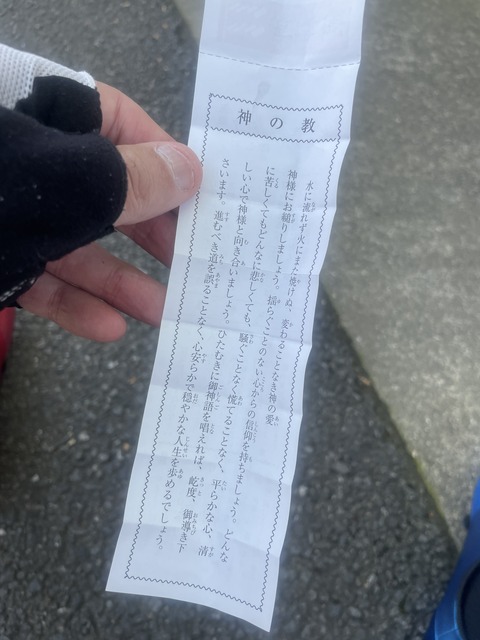 神の教
水に流れず火にまた焼けぬ、変わることなき神の愛
神様にお縋りしましょう。揺らぐことのない心からの信仰を持ちましょう。どんな
に苦しくてもどんなに悲しくても、騒ぐことなく慌てることなく、平らかな心、清
しい心で神様と向き合いましょう。ひたむきに御神語を唱えれば、屹度、御導き下
さいます。進むべき道を誤ることなく、心安らかで穏やかな人生を歩めるでしょう。